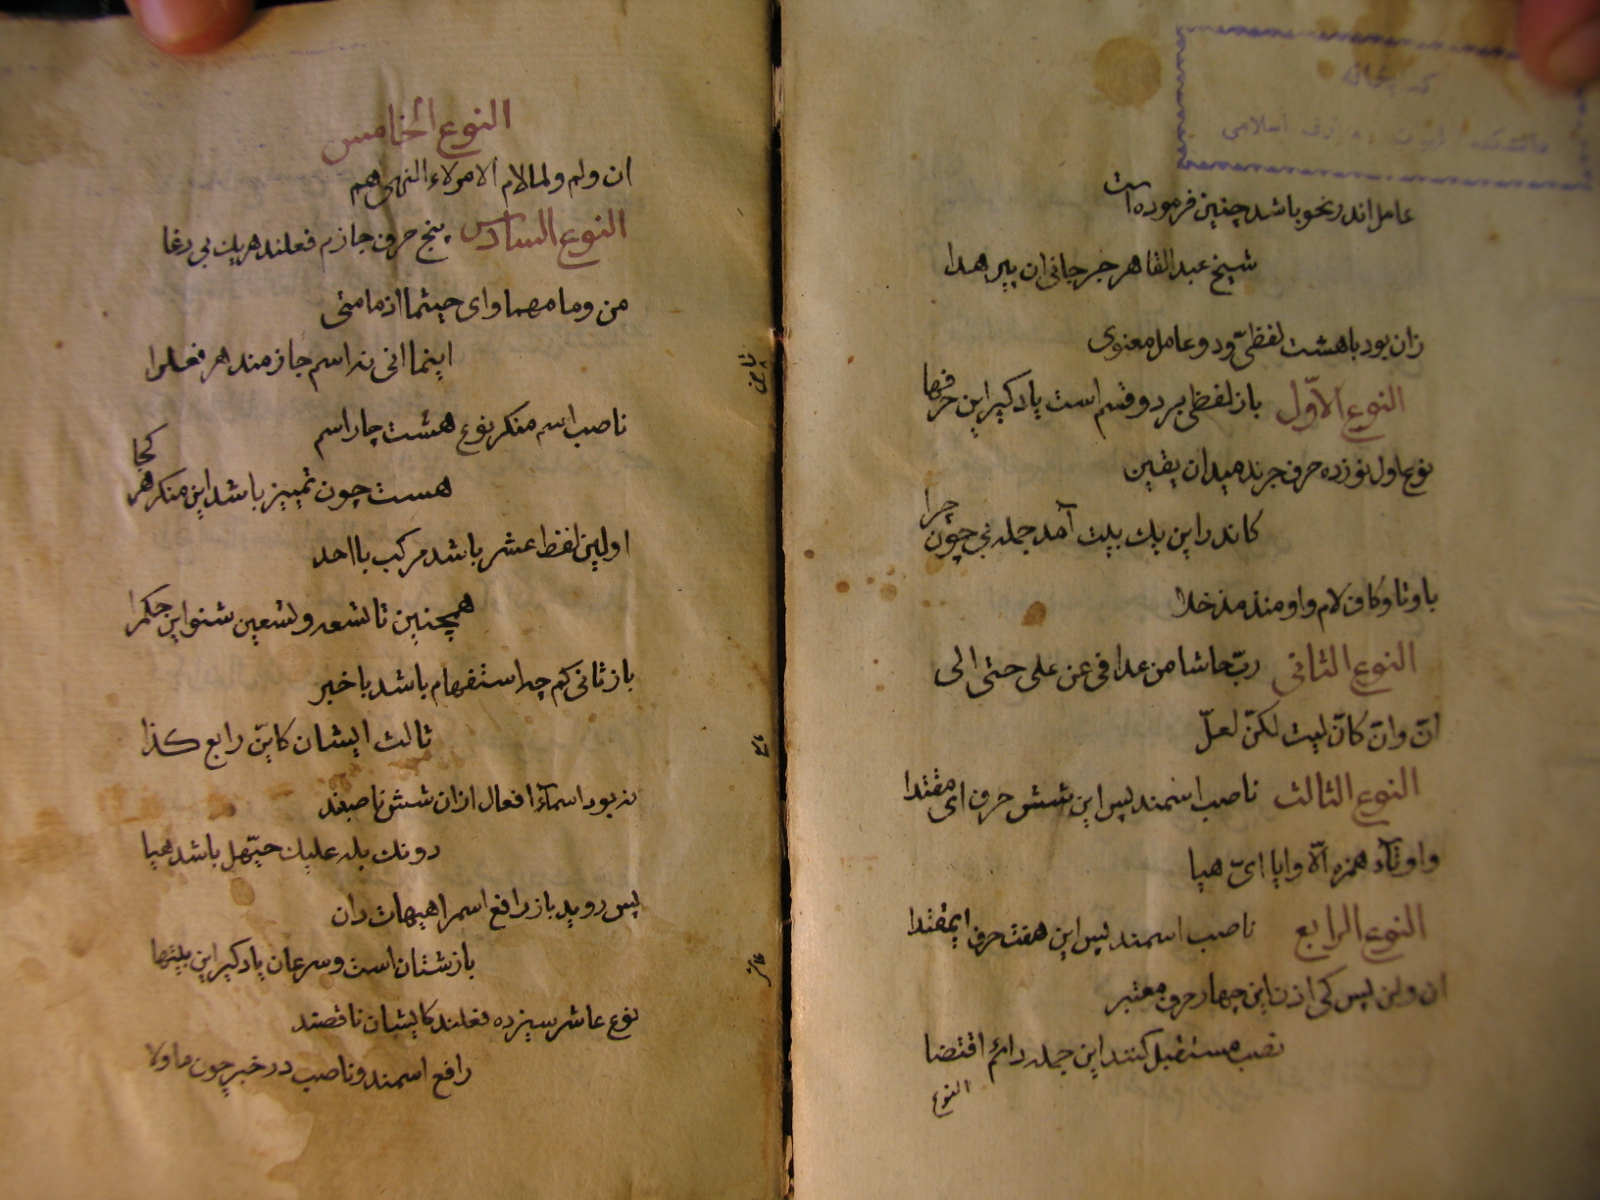 کتابخانه
دانشکده الهیات و معارف اسلامی
عامل اندر نحو باشد چنین فرموده است
شیخ عبدالقاهر جرجانی ان پیر هدا
زان بود با هشت لفظیّ و دو عامل معنوی
النوع الاوّل باز لفظی بر دو قسم است یاد کیر این حرفها
نوع اول نوزده حرف جرند میدان یقین
کاندر این یك بیت آمد جمله بی چون چرا
با و تا و کاف لام واو منذ مذ خلا
النوع الثانی ربّ حاشا من عدا فی عن علی حتی الی
انّ وانّ کانّ لیت لکنّ لعلّ
النوع الثالث ناصب اسمند پس این شش حرف ای مقتدا
واو همزه الّا وایا ایّ هیا
النوع الرابع ناصب اسمند پس این هفت حرف ایمقتدا
ان ولن پس کی اذن این چهار حرف معتبر
نصب مستقبل کنند این جمله دائم اقتضا
النوع
النوع الخامس
ان ولم ولما لام الامر لاء النهی هم
النوع السادس پنج حرف جازم فعلند هریك بی دغا
من وما مهما وای حیثما اذما متی
اینما انی نه اسم جازمند هر فعلرا
ناصب اسم منکر نوع هشت چار اسم
هست چون تمییز باشد این منکر هر کجا
اولین لفظ عشر باشد مرکب با احد
همچنین تا تسعه وتسعین شنو این حکمرا
باز ثانی کم چه استفهام باشد با خبر
ثالث ایشان کایّن رابع کذا
نه بود اسماء افعال ازان شش ناصبند
دونك بله علیك حیّهل باشد هیا
پس روید باز رافع اسمرا هیهات دان
باز شتان است وسرعان یاد کیر این بیتها
نوع عاشر سیزده فعلند کایشان ناقصند
رافع اسمند وناصب در خبر چون ما ولا